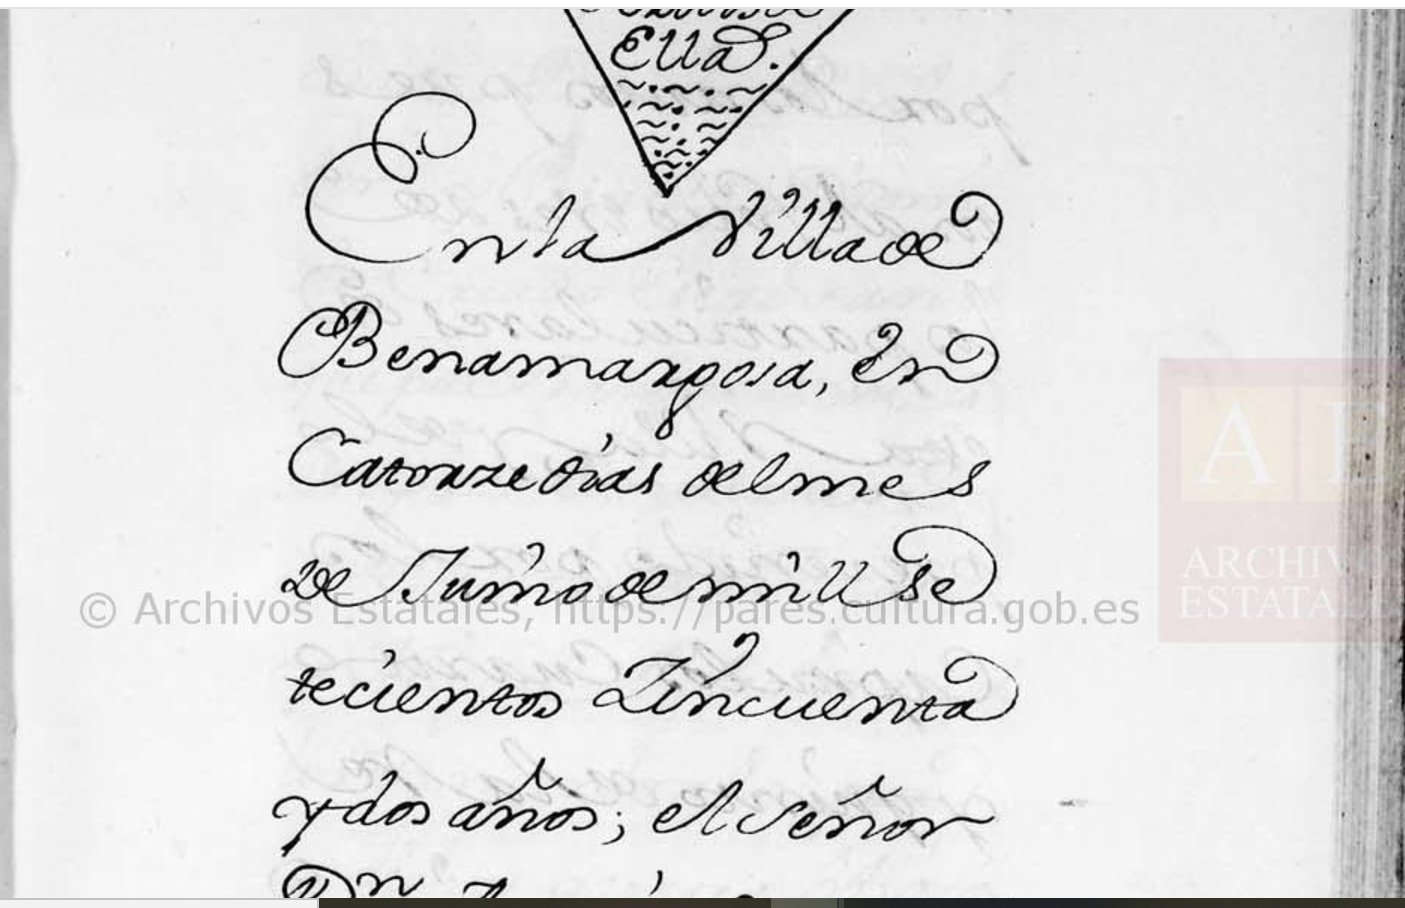 Ella.
En la Villa de
Benamargosa, En
Catorze dias del mes
de Junio de mill se
tecientos Zincuenta
y dos años; el señor
Dn
© Archivos Estatales, https://pares.cultura.gob.es
A E
ARCHIVOS
ESTATALES